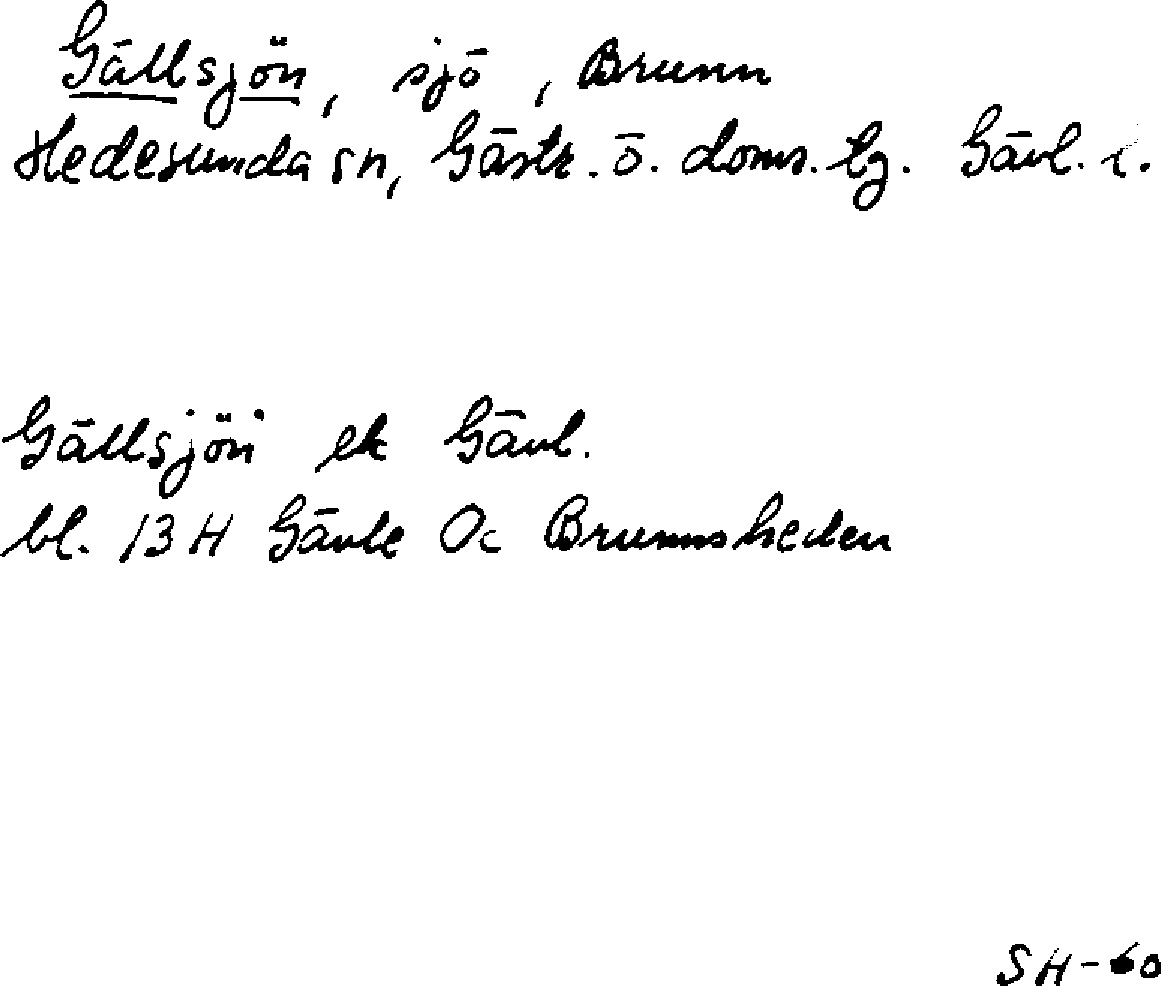 Gällsjön, sjö, Brunn
Hedesunda sn, Gästr. ö. doms. tg. Gävl. l.
Gällsjön ek Gävl.
bl. 13H Gävle Oc Brunnsheden
SH-60